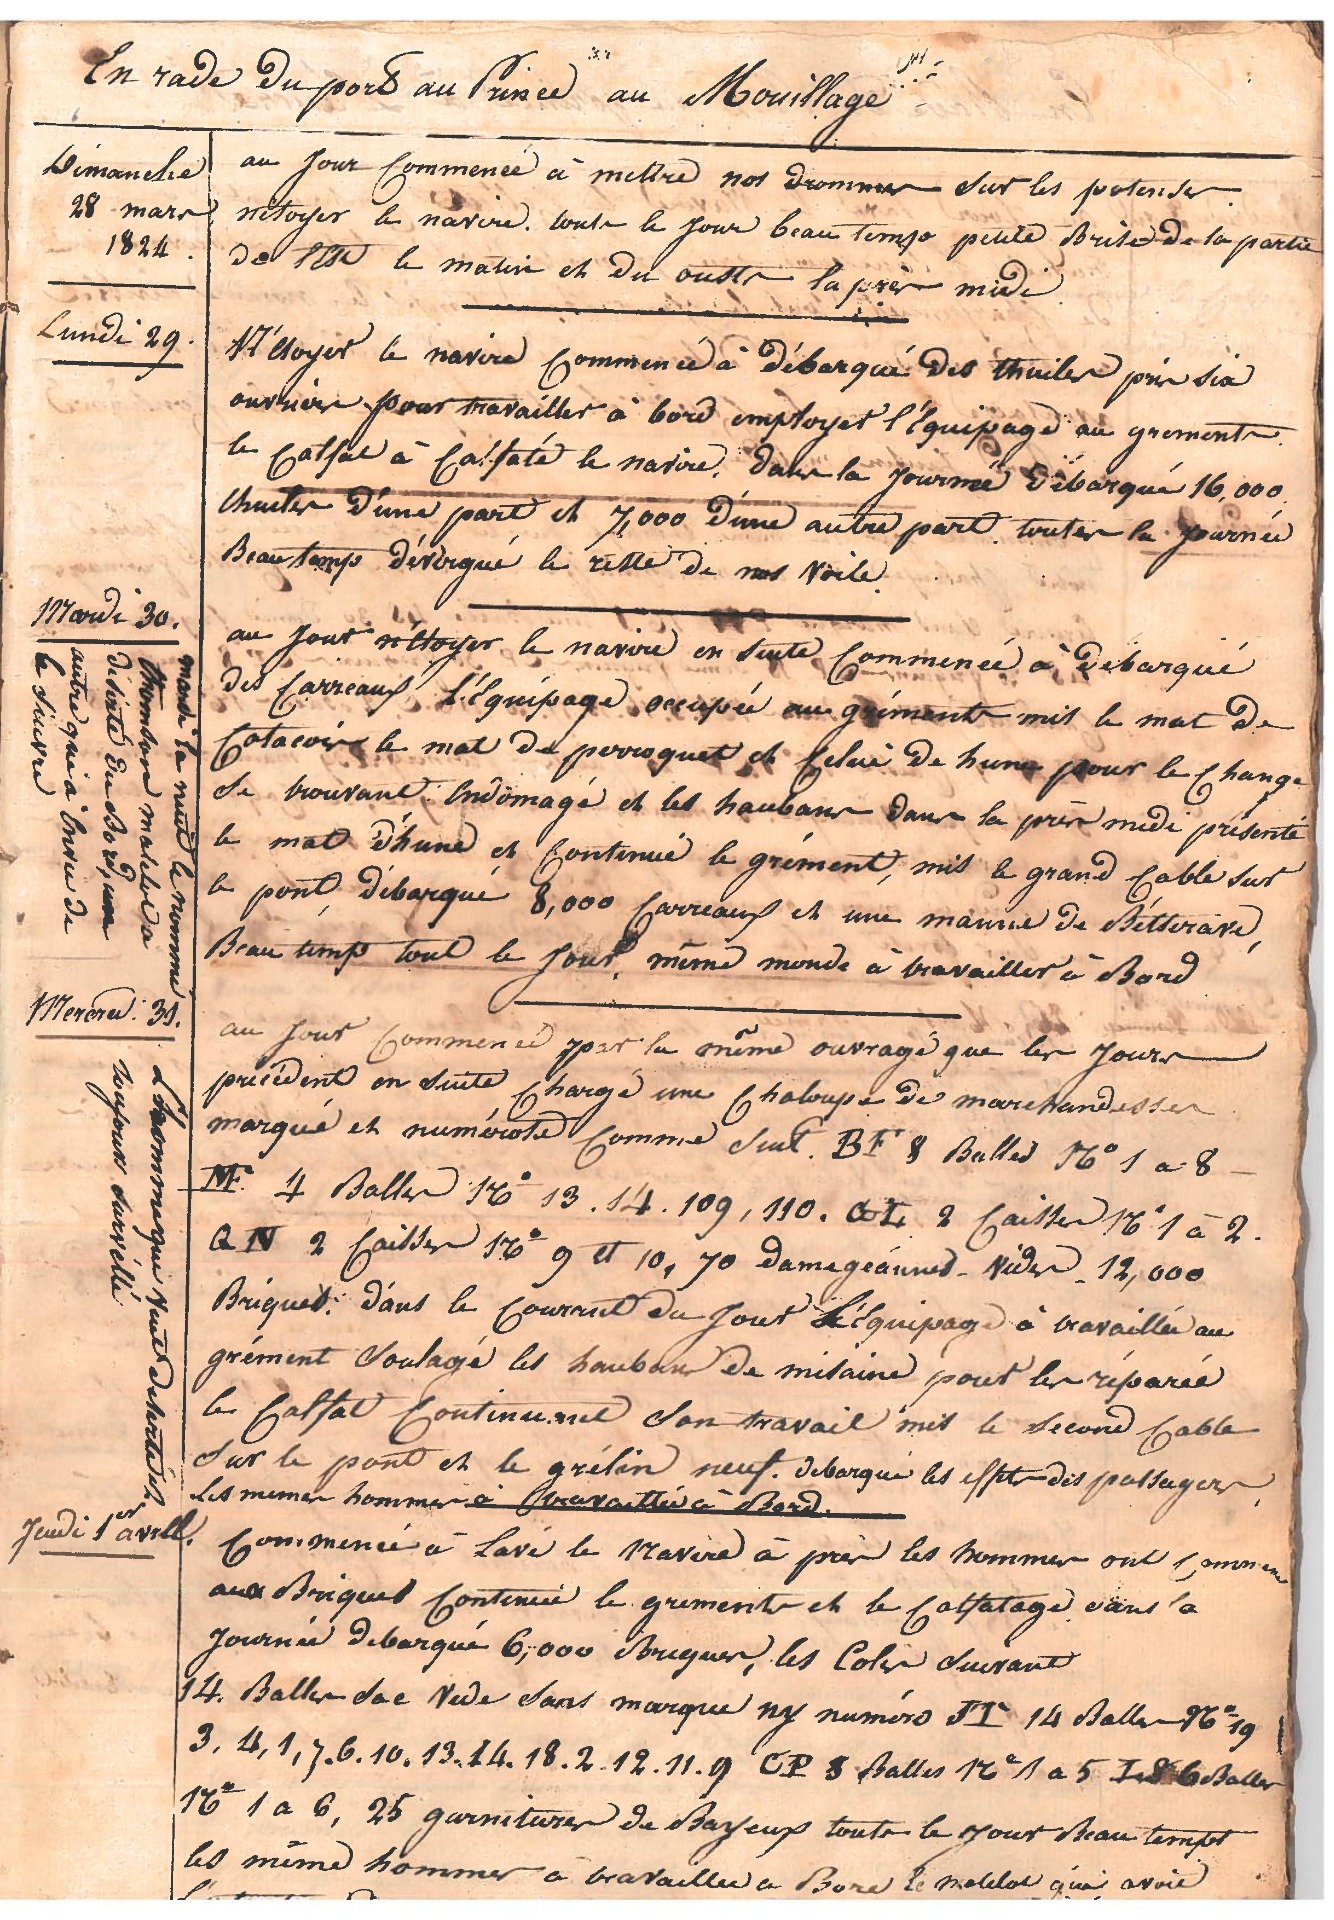 En rade Du port au Prince au Mouillage
Dimanche
28 mars
1824.
au Jour Commencé à mettre nos drommes sur les potenses.
nétoyer le navire. toute le Jour beau temps petite Brise de la partie
de l'Est le matin et du ouste la près midi
Lundi 29.
Nétoyer le navire Commencé à débarqué des thuiles pris six
ouvriers pour travailler à bord employer l'Equipage au grements
le Calfat à Calfaté le navire. dans la Journée débarqué 16,000
thuiles d'une part et 7,000 d'une autre part. toutes la Journée
Beau temps dévergué le reste de nos voile.
Mardi 30.
mardi la nuit le nommé
matelot a
deserté du Bord, un
autre qui a Envie de
le suivre
au Jour nétoyer le navire en suite Commencé à débarqué
des Carreaux, l'Equipage occupée au gréments mis le mat de
Catacois le mat de perroquet et Celui de hune pour le Change
se trouvant Endomagé et les haubans dans la près midi présenté
le mat d'hune et Continué le grément, mis le grand Cable sur
le pont, débarqué 8,000 Carreaux et une manne de Bétterave,
Beau temps tout le Jour, même monde à travailler à Bord
Mercredi 31.
L'homme que veut deserté est
toujours surveillé
au Jour Commencé par la même ouvragé que les Jours
précédent en suite Chargé une Chaloupe de marchandesses
marqué et numéroté Comme suit. BF 8 Balles No 1 a 8
MF 4 Balles No 13. 14. 109, 110. GL 2 Caisses No 1 à 2.
QN 2 Caisses No 9 et 10, 70 damegeannes vides 12,000
Briques. dans le Courrant du Jour l'Equipage à travaillée au
grément soulagé les haubans de misaine pour les réparée
le Calfat Continuant son travail mis le second Cable
sur le pont et le grélin neuf. débarqué les effets des passagers,
Les memes hommes à travaillée à Bord.
Jeudi 1er avril.
Commencé à Lavé le navire à près les hommes ont
aux Briques Continué le grements et le Calfatage dans la
Journée débarqué 6,000 Briques, les Colis suivant
14. Balles sac vide sans marque ny numéro 14 Balles No 19
3. 4, 1, 7. 6. 10. 13. 14. 18. 2. 12. 11. 9 CP 5 Balles No 1 a 5 6 Balles
No 1 a 6, 25 garnitures de toute le Jour Beau temps
les même hommes à travaillée a Bord le matelot qui avoit